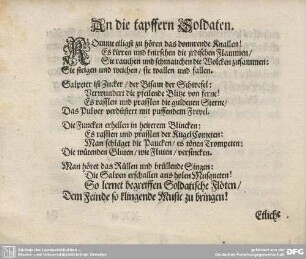 An die tapffern Soldaten.
KOmmt eiligst zu hören das donnernde Knallen!
Es kirren und knirschen die irdischen Flammen/
Sie rauchen und schmauchen die Wolcken zusammen:
Sie steigen und weichen/ sie wallen und fallen.
Salpeter ist Zucker/ der Bisam der Schwefel:
Verwundert die pfeilende Blitze von ferne!
Es rasslen und prasslen die guldenen Sterne/
Das Pulver verdüstert mit puffendem Frevel.
Die Funcken erhellen in heiterem Blincken:
Es rasslen und prasslen der Kugel Cometen:
Man schläget die Paucken/ es tönen Trompeten:
Die wütenden Gluten/ wie Fluten/ versincken.
Man höret das Rasslen und brüllende Singen:
Die Salven erschallen aus holen Musqueten!
So lernet begreiffen Soldatische Flöten/
Dem Feinde so klingende Music zu bringen!
Etliche